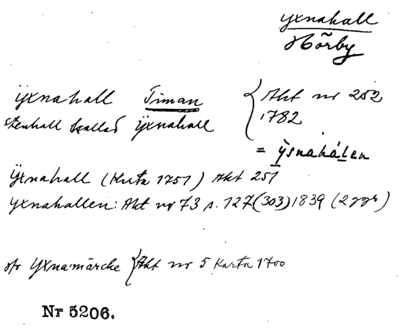 yxnahall
Hörby
yxnahall Timan { Akt nr 252
stenhall kallad ÿxnahall 1782
= ẏsnahálen
Ÿxnahall (Karta 1751) Akt 251
yxnahallen: Akt nr 73 s. 127 (303) 1839 (2 ggr)
Yxnamärche { Akt nr 5 Karta 1700
Nr 5206.